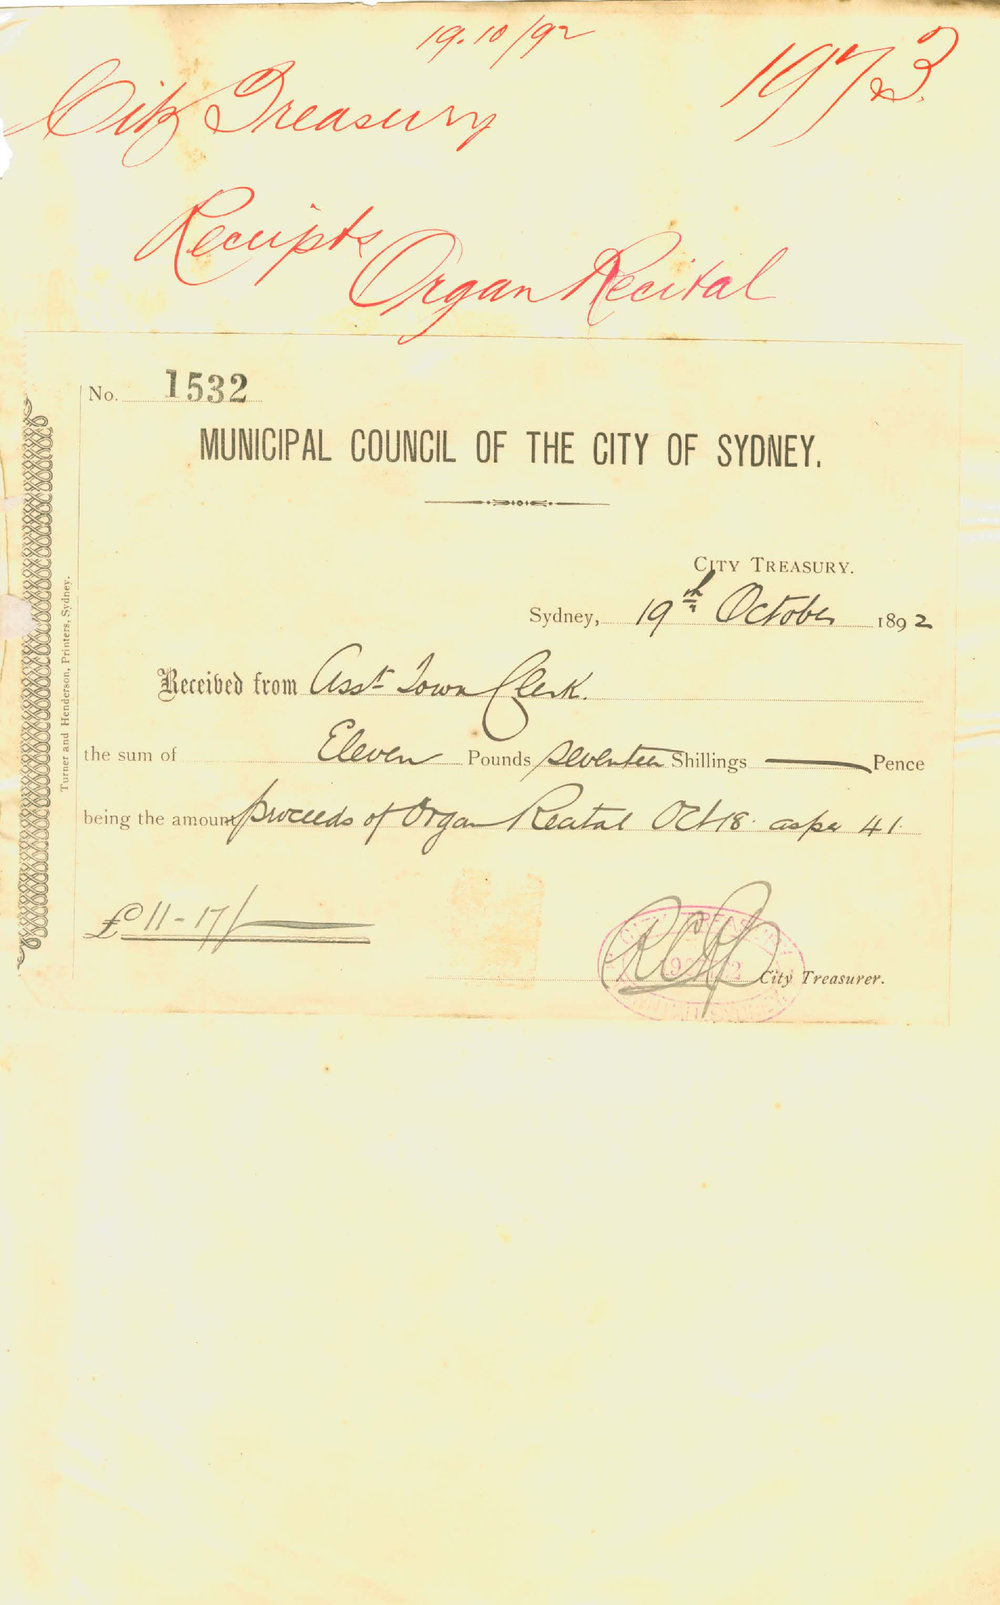 19.10/92
1973
City Treasury
Receipts
Organ Recital
No. 1532
MUNICIPAL COUNCIL OF THE CITY OF SYDNEY.
CITY TREASURY.
Sydney, 19th October 1892
Received from Asst Town Clerk.
the sum of Eleven Pounds seventeen Shillings — Pence
being the amount proceeds of Organ Recital Oct 18. as per 41.
£11-17/—
City Treasurer.
CITY TREASURY
Turner and Henderson, Printers, Sydney.